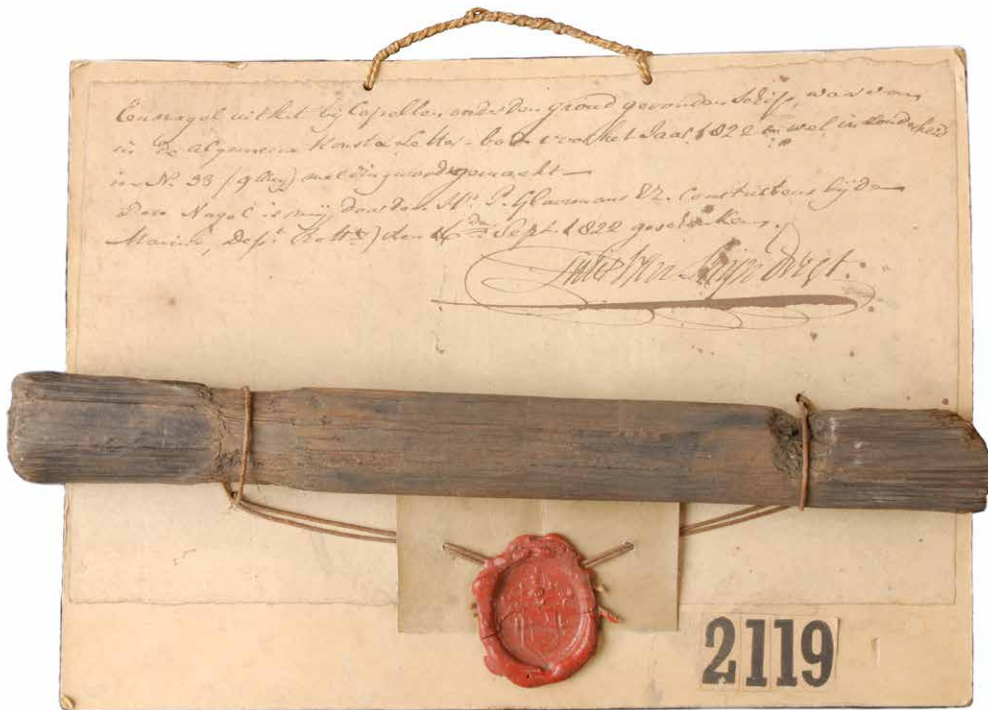 Een nagel uit het bij Capellen onder den grond gevonden Schip, waarvan
in de algemeene Konst & Letter-bode voor het Jaar 1822 en wel in
in No. 33 (9 Aug) melding word gemaakt—
Deze Nagel is mij door den Hr. P. Glavimans Vz. Constructeur bij de
Marine, Dept. Rott.) den 16den Sept. 1822 geschonken.
2119